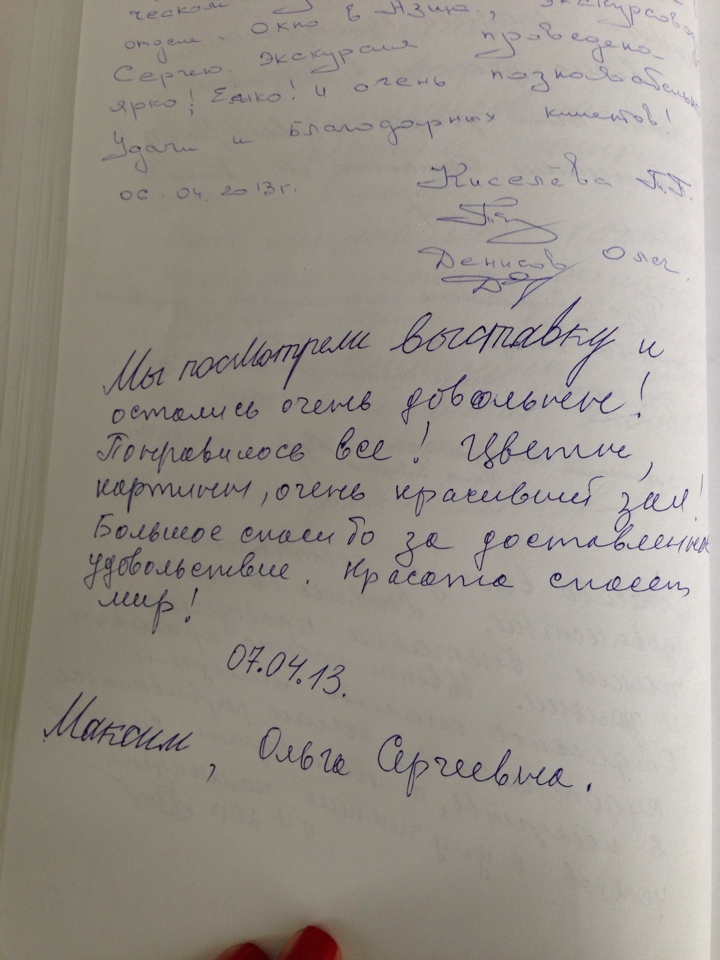 ческом
Окно в Азию, экскурсовод
отдел.
Сергею. Экскурсия проведена
ярко! Ёмко! и очень познавательно
Удачи и благодарных клиентов!
06.04.2013г.
Киселёва Т.Г.
Денисов Олег
Мы посмотрели выставку и
остались очень довольны!
Понравилось все! Цветы,
картины, очень красивый зал!
Большое спасибо за доставленное
удовольствие. Красота спасет
мир!
07.04.13.
Максим, Ольга Сергеевна.